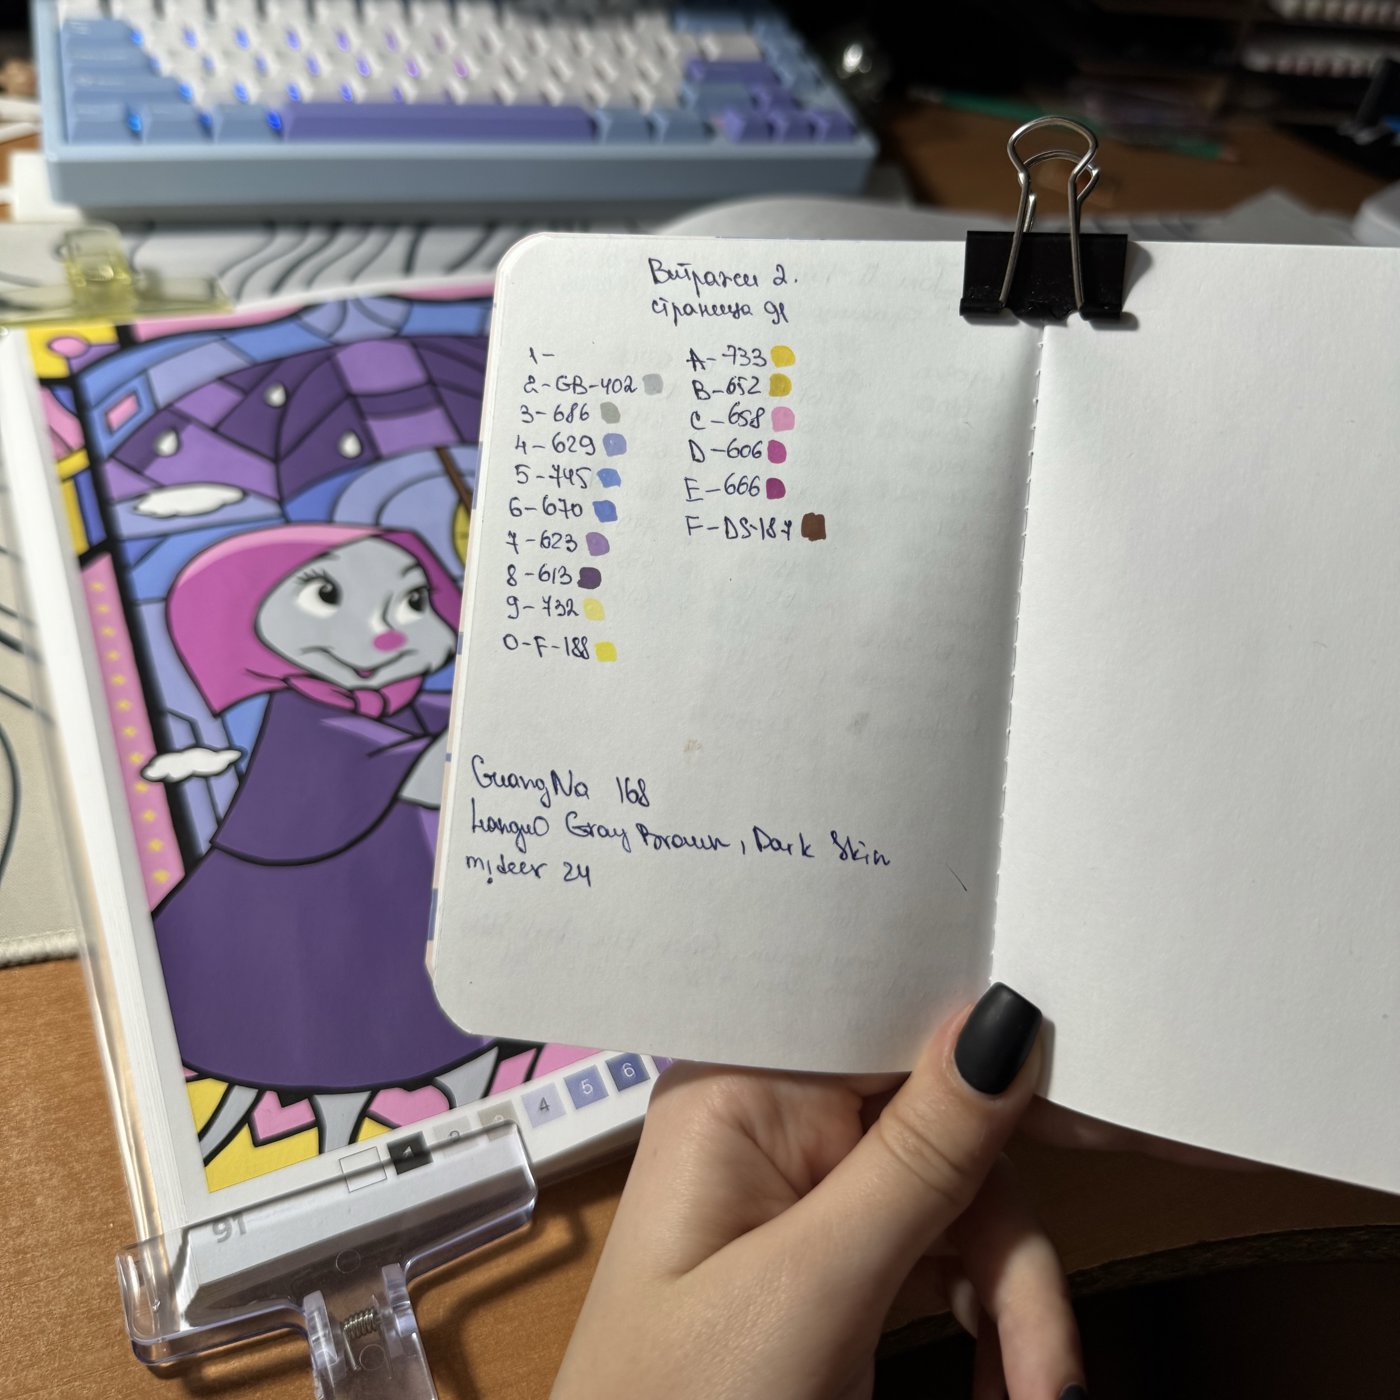 Витражи 2.
страница 91
1-
2-GB-402
3-686
4-629
5-745
6-670
7-623
8-613
9-732
0-F-188
A-733
B-652
C-658
D-606
E-666
F-DS-187
GuangNa 168
Languo Gray Brown, Dark Skin
mideer 24
1
2
3
4
5
6
91